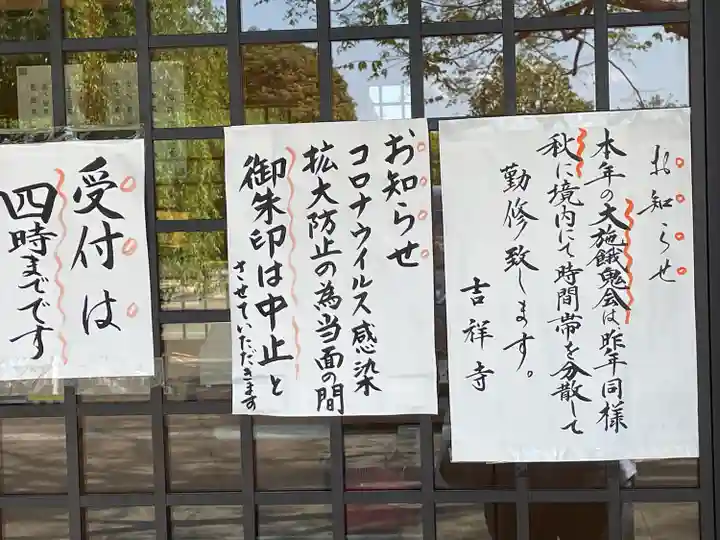 お知らせ
本年の大施餓鬼会は昨年同様
秋に境内にて時間帯を分散して
勤修致します。
吉祥寺
お知らせ
コロナウイルス感染
拡大防止の為当面の間
御朱印は中止と
させていただきます
受付は
四時までです